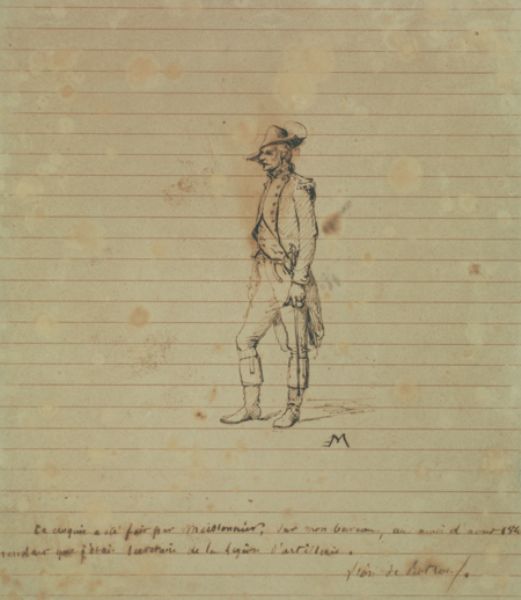 EM
Ce croquis a été fait par Meissonnier, sur mon bureau, au mois d'aout 184
pendant que j'étais secrétaire de la légion d'artillerie.
de